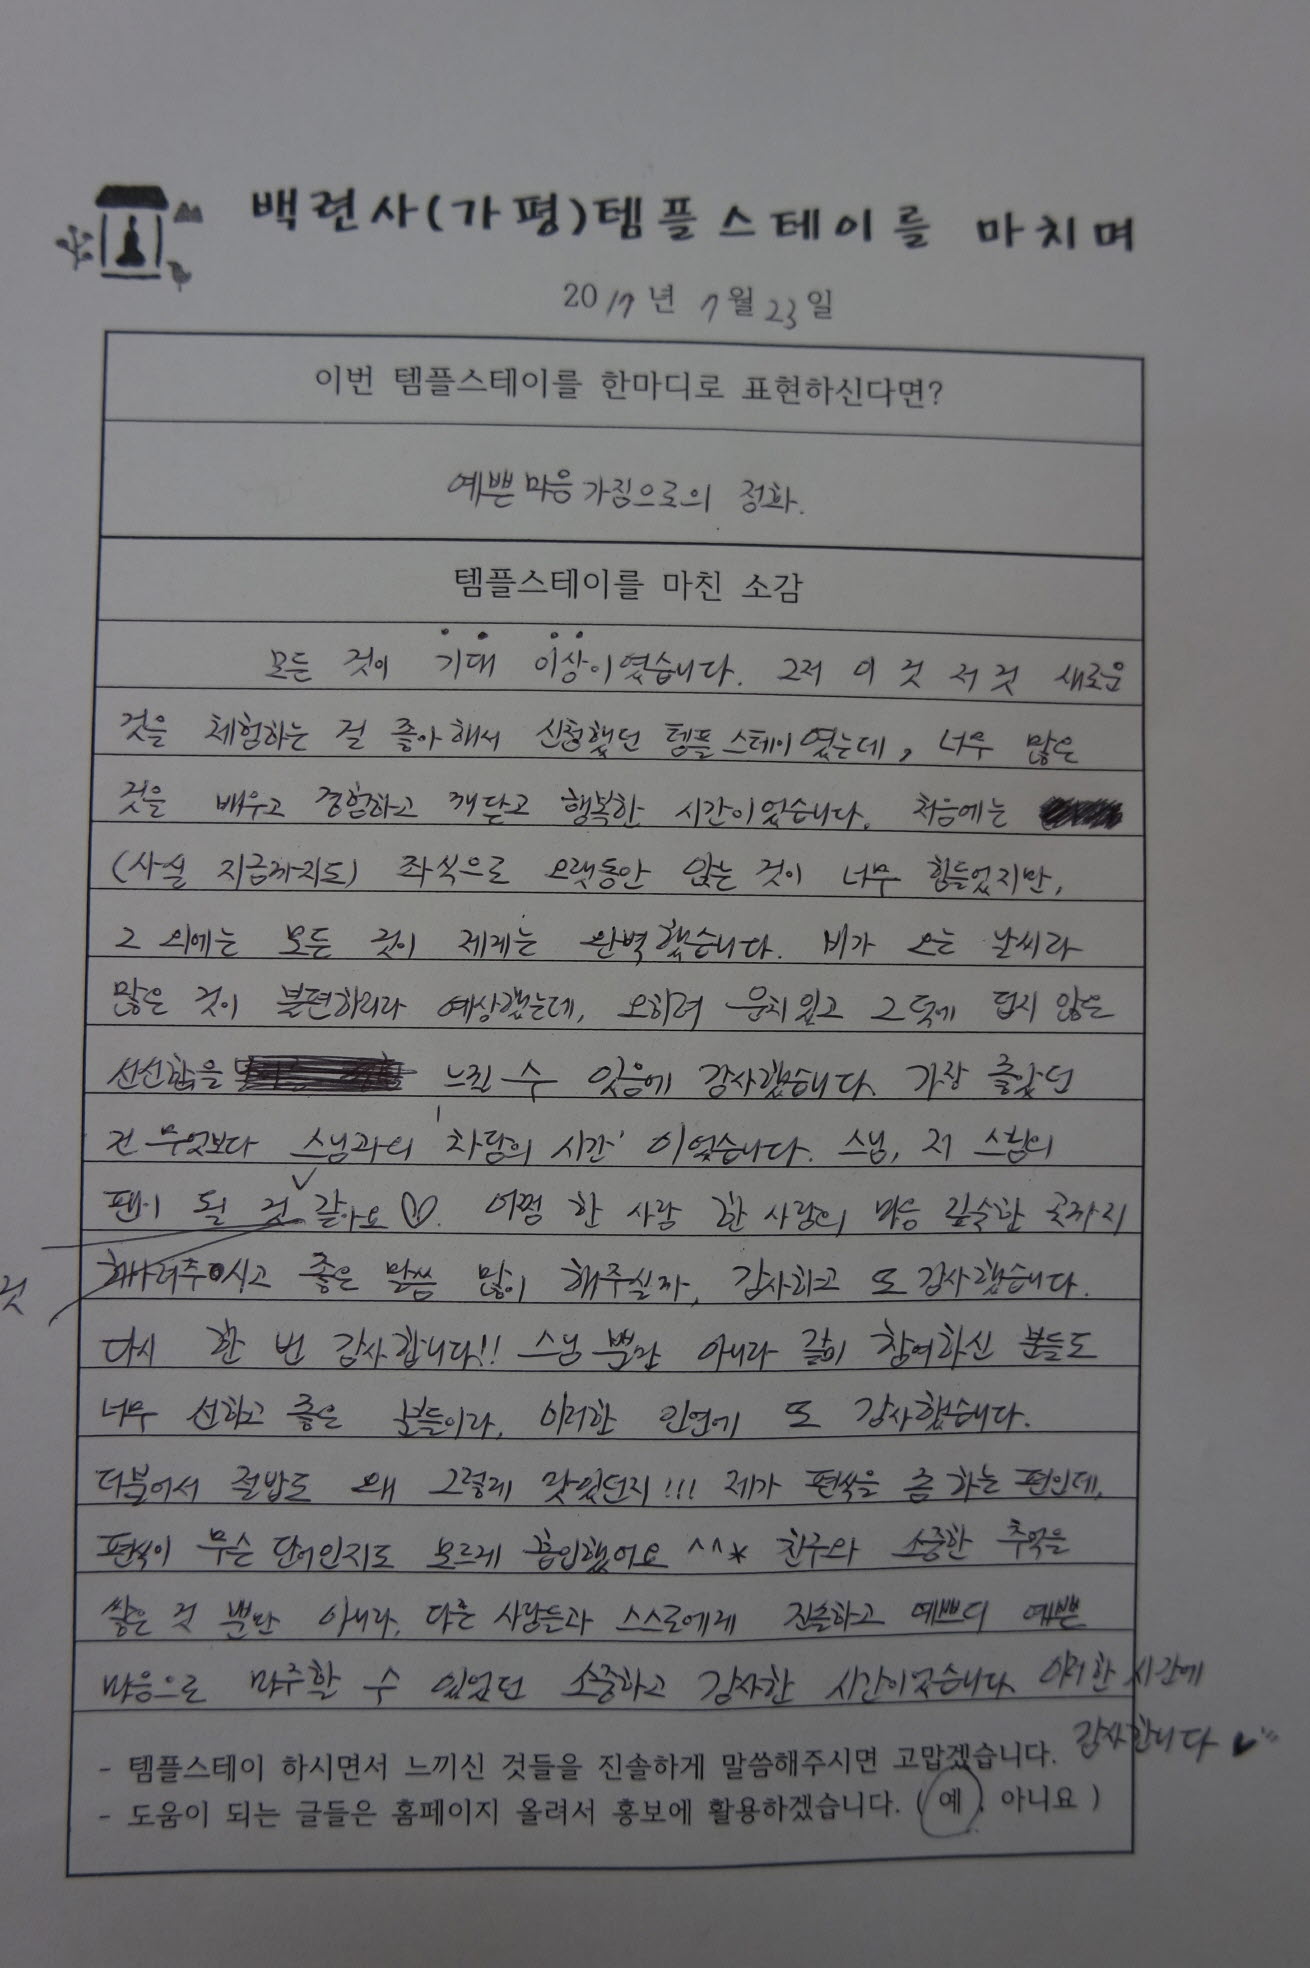 백련사(가평)템플스테이를 마치며
2017년 7월 23일
이번 템플스테이를 한마디로 표현하신다면?
예쁜 마음가짐으로의 정화.
템플스테이를 마친 소감
모든 것이 기대 이상이였습니다. 그저 이것 저것 새로운
것을 체험하는 걸 좋아해서 신청했던 템플스테이였는데, 너무 많은
것을 배우고 경험하고 깨닫고 행복한 시간이었습니다. 처음에는
(사실 지금까지도) 좌식으로 오랫동안 앉는 것이 너무 힘들었지만,
그 외에는 모든 것이 제게는 완벽했습니다. 비가 오는 날씨라
많은 것이 불편하리라 예상했는데, 오히려 운치있고 그 덕에 덥지 않은
선선함을 느낄 수 있음에 감사했습니다. 가장 좋았던
건 무엇보다 스님과의 '차담의 시간' 이었습니다. 스님, 저 스님의
팬이 될 것 같아요♡. 어쩜 한 사람 한 사람의 마음 깊숙한 곳까지
헤아려주시고 좋은 말씀 많이 해주실까, 감사하고 또 감사했습니다.
것
다시 한 번 감사합니다!! 스님 뿐만 아니라 같이 참여하신 분들도
너무 선하고 좋은 분들이라, 이러한 인연에 또 감사했습니다.
더불어서 절밥도 왜 그렇게 맛있던지!!! 제가 편식을 좀 하는 편인데,
편식이 무슨 단어인지도 모르게 흡입했어요 ^^* 친구와 소중한 추억을
쌓은 것 뿐만 아니라, 다른 사람들과 스스로에게 진솔하고 예쁘디 예쁜
마음으로 마주할 수 있었던 소중하고 감사한 시간이었습니다. 이러한 시간에
감사합니다
- 템플스테이 하시면서 느끼신 것들을 진솔하게 말씀해주시면 고맙겠습니다.
- 도움이 되는 글들은 홈페이지 올려서 홍보에 활용하겠습니다. ( 예 , 아니요 )